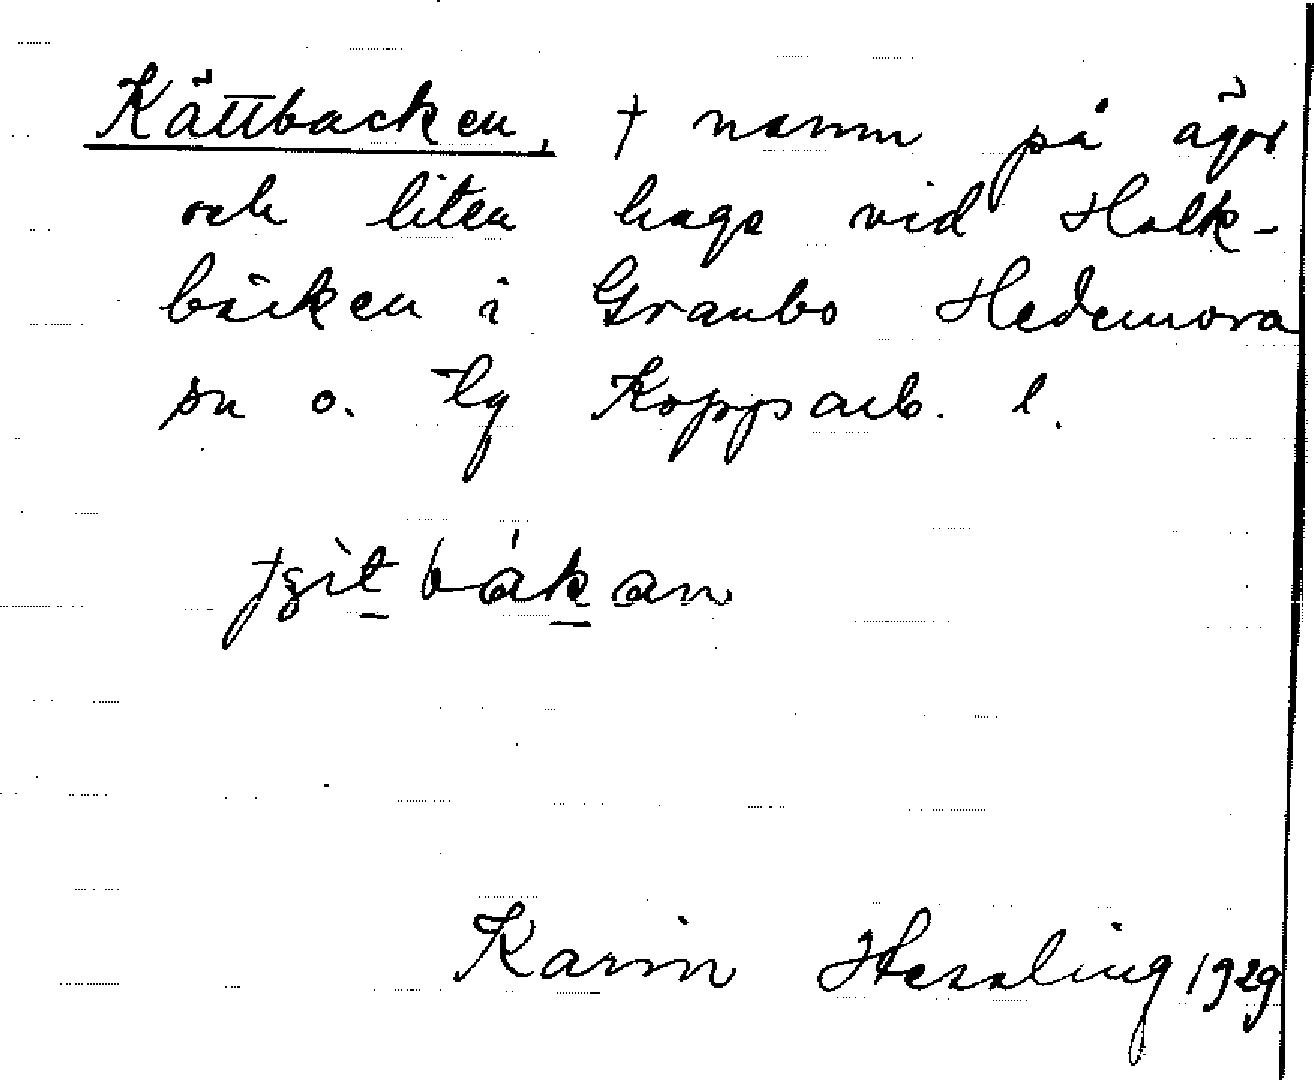 Kättbacken, † namn på ägor
och liten hage vid Holk-
bäcken i Granbo Hedemora
sn o. tg Kopparb. l.
Karin Hessling 1929